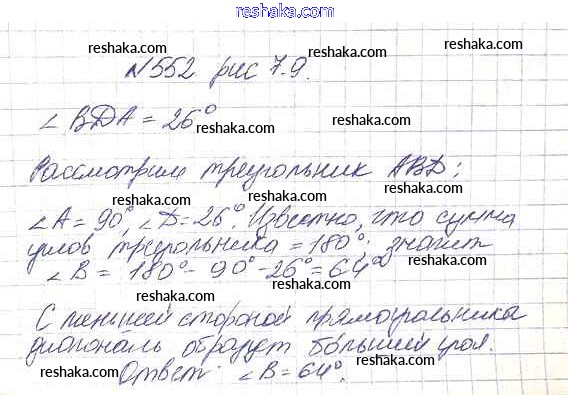 reshaka.com
reshaka.com
№552 рис 7.9.
reshaka.com reshaka.com
∠ BDA = 26°
reshaka.com
reshaka.com reshaka.com
Рассмотрим треугольник ABD:
reshaka.com
∠A = 90°, ∠D = 26°. Известно, что сумма
reshaka.com reshaka.com
углов треугольника = 180°. значит
∠B = 180° - 90° - 26° = 64°
reshaka.com reshaka.com
reshaka.com
С меньшей стороной прямоугольника
reshaka.com
диагональ образует больший угол.
reshaka.com reshaka.com
Ответ: ∠B = 64°.
reshaka.com
reshaka.com